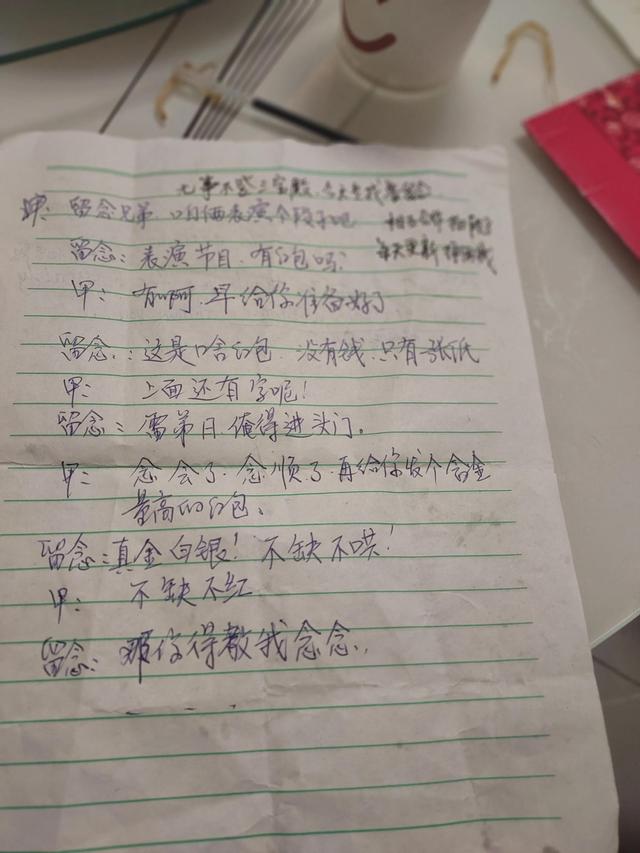 无事不登三宝殿.今天来找
甲: 留念兄弟. 咱俩表演个段子吧
每天更新
留念: 表演节目.有红包吗?
甲: 有啊.早给你准备好了
留念: 这是啥红包 没有钱.只有一张纸
甲: 上面还有字呢!
留念: 弟日 俺得进头门.
甲: 念会了.念顺了.再给你发个含金
量高的红包.
留念: 真金白银! 不缺不哄!
甲: 不缺不红
留念: 那你得教我念念.